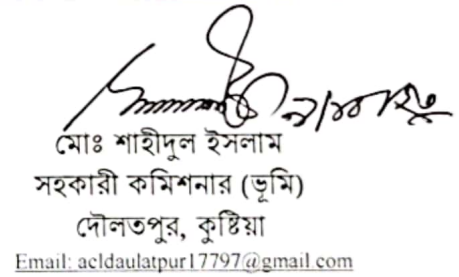 মোঃ শাহীদুল ইসলাম
সহকারী কমিশনার (ভূমি)
দৌলতপুর, কুষ্টিয়া
Email: acldaulatpur17797@gmail.com